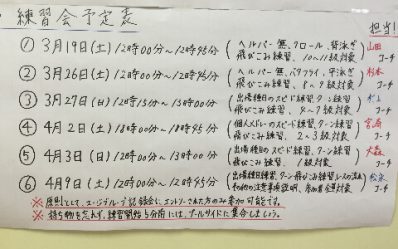 練習会予定表
担当
① 3月19日(土) 12時00分～12時45分 (ヘルパー無、クロール、背泳ぎ 山田
飛びこみ練習、10～11級対象) コーチ
② 3月26日(土) 12時00分～12時45分 (ヘルパー無、バタフライ、平泳ぎ 杉本
飛びこみ練習、8～9級対象) コーチ
③ 3月27日(日) 12時15分～13時00分 (出場種目のスピード練習、ターン練習
飛びこみ練習、4～7級対象) コーチ
④ 4月2日(土) 18時00分～18時45分 (個人メドレーのスピード練習、ターン練習 宮崎
飛びこみ練習、2～3級対象) コーチ
⑤ 4月3日(日) 12時00分～13時00分 (出場種目のスピード練習、ターン練習 大森
飛びこみ練習、1級対象) コーチ
⑥ 4月9日(土) 12時00分～12時45分 (出場種目練習、ターン飛びこみ練習
注意事項説明、参加者全員対象) コーチ
※原則として、エージグループ記録会に、エントリーされた方のみ参加可能です。
※持ち物を忘れず、練習開始5分前には、プールサイドに集合しましょう。